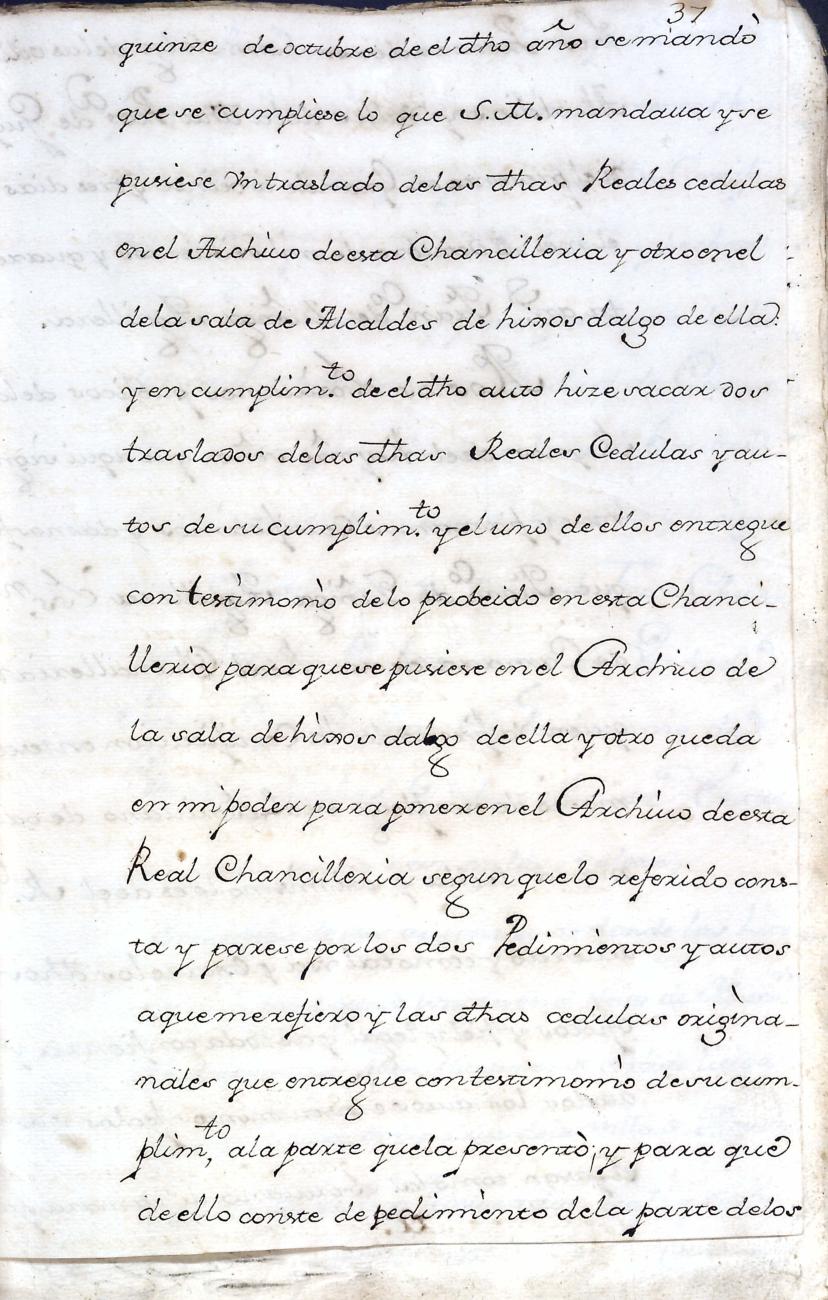 37
quinze de octubre de el dho año se mandò
que se cumpliese lo que S.M. mandaua y se
pusiese Vn traslado de las dhas Reales cedulas
en el Archiuo de esta Chancilleria y otro en el
de la sala de Alcaldes de hixos dalgo de ella:
y en cumplim.to de el dho auto hize sacar dos
traslados de las dhas Reales Cedulas y au-
tos de su cumplim.to y el uno de ellos entregue
con testimonio de lo probeido en esta Chanci-
lleria para que se pusiese en el Archiuo de
la sala de hixos dalgo de ella y otro queda
en mi poder para poner en el Archiuo de esta
Real Chancilleria segun que lo referido cons-
ta y parese por los dos Pedimientos y autos
a que me refiero y las dhas cedulas origina-
nales que entregue con testimonio de su cum-
plim,to a la parte que la presentò; y para que
de ello conste de pedimiento de la parte de los